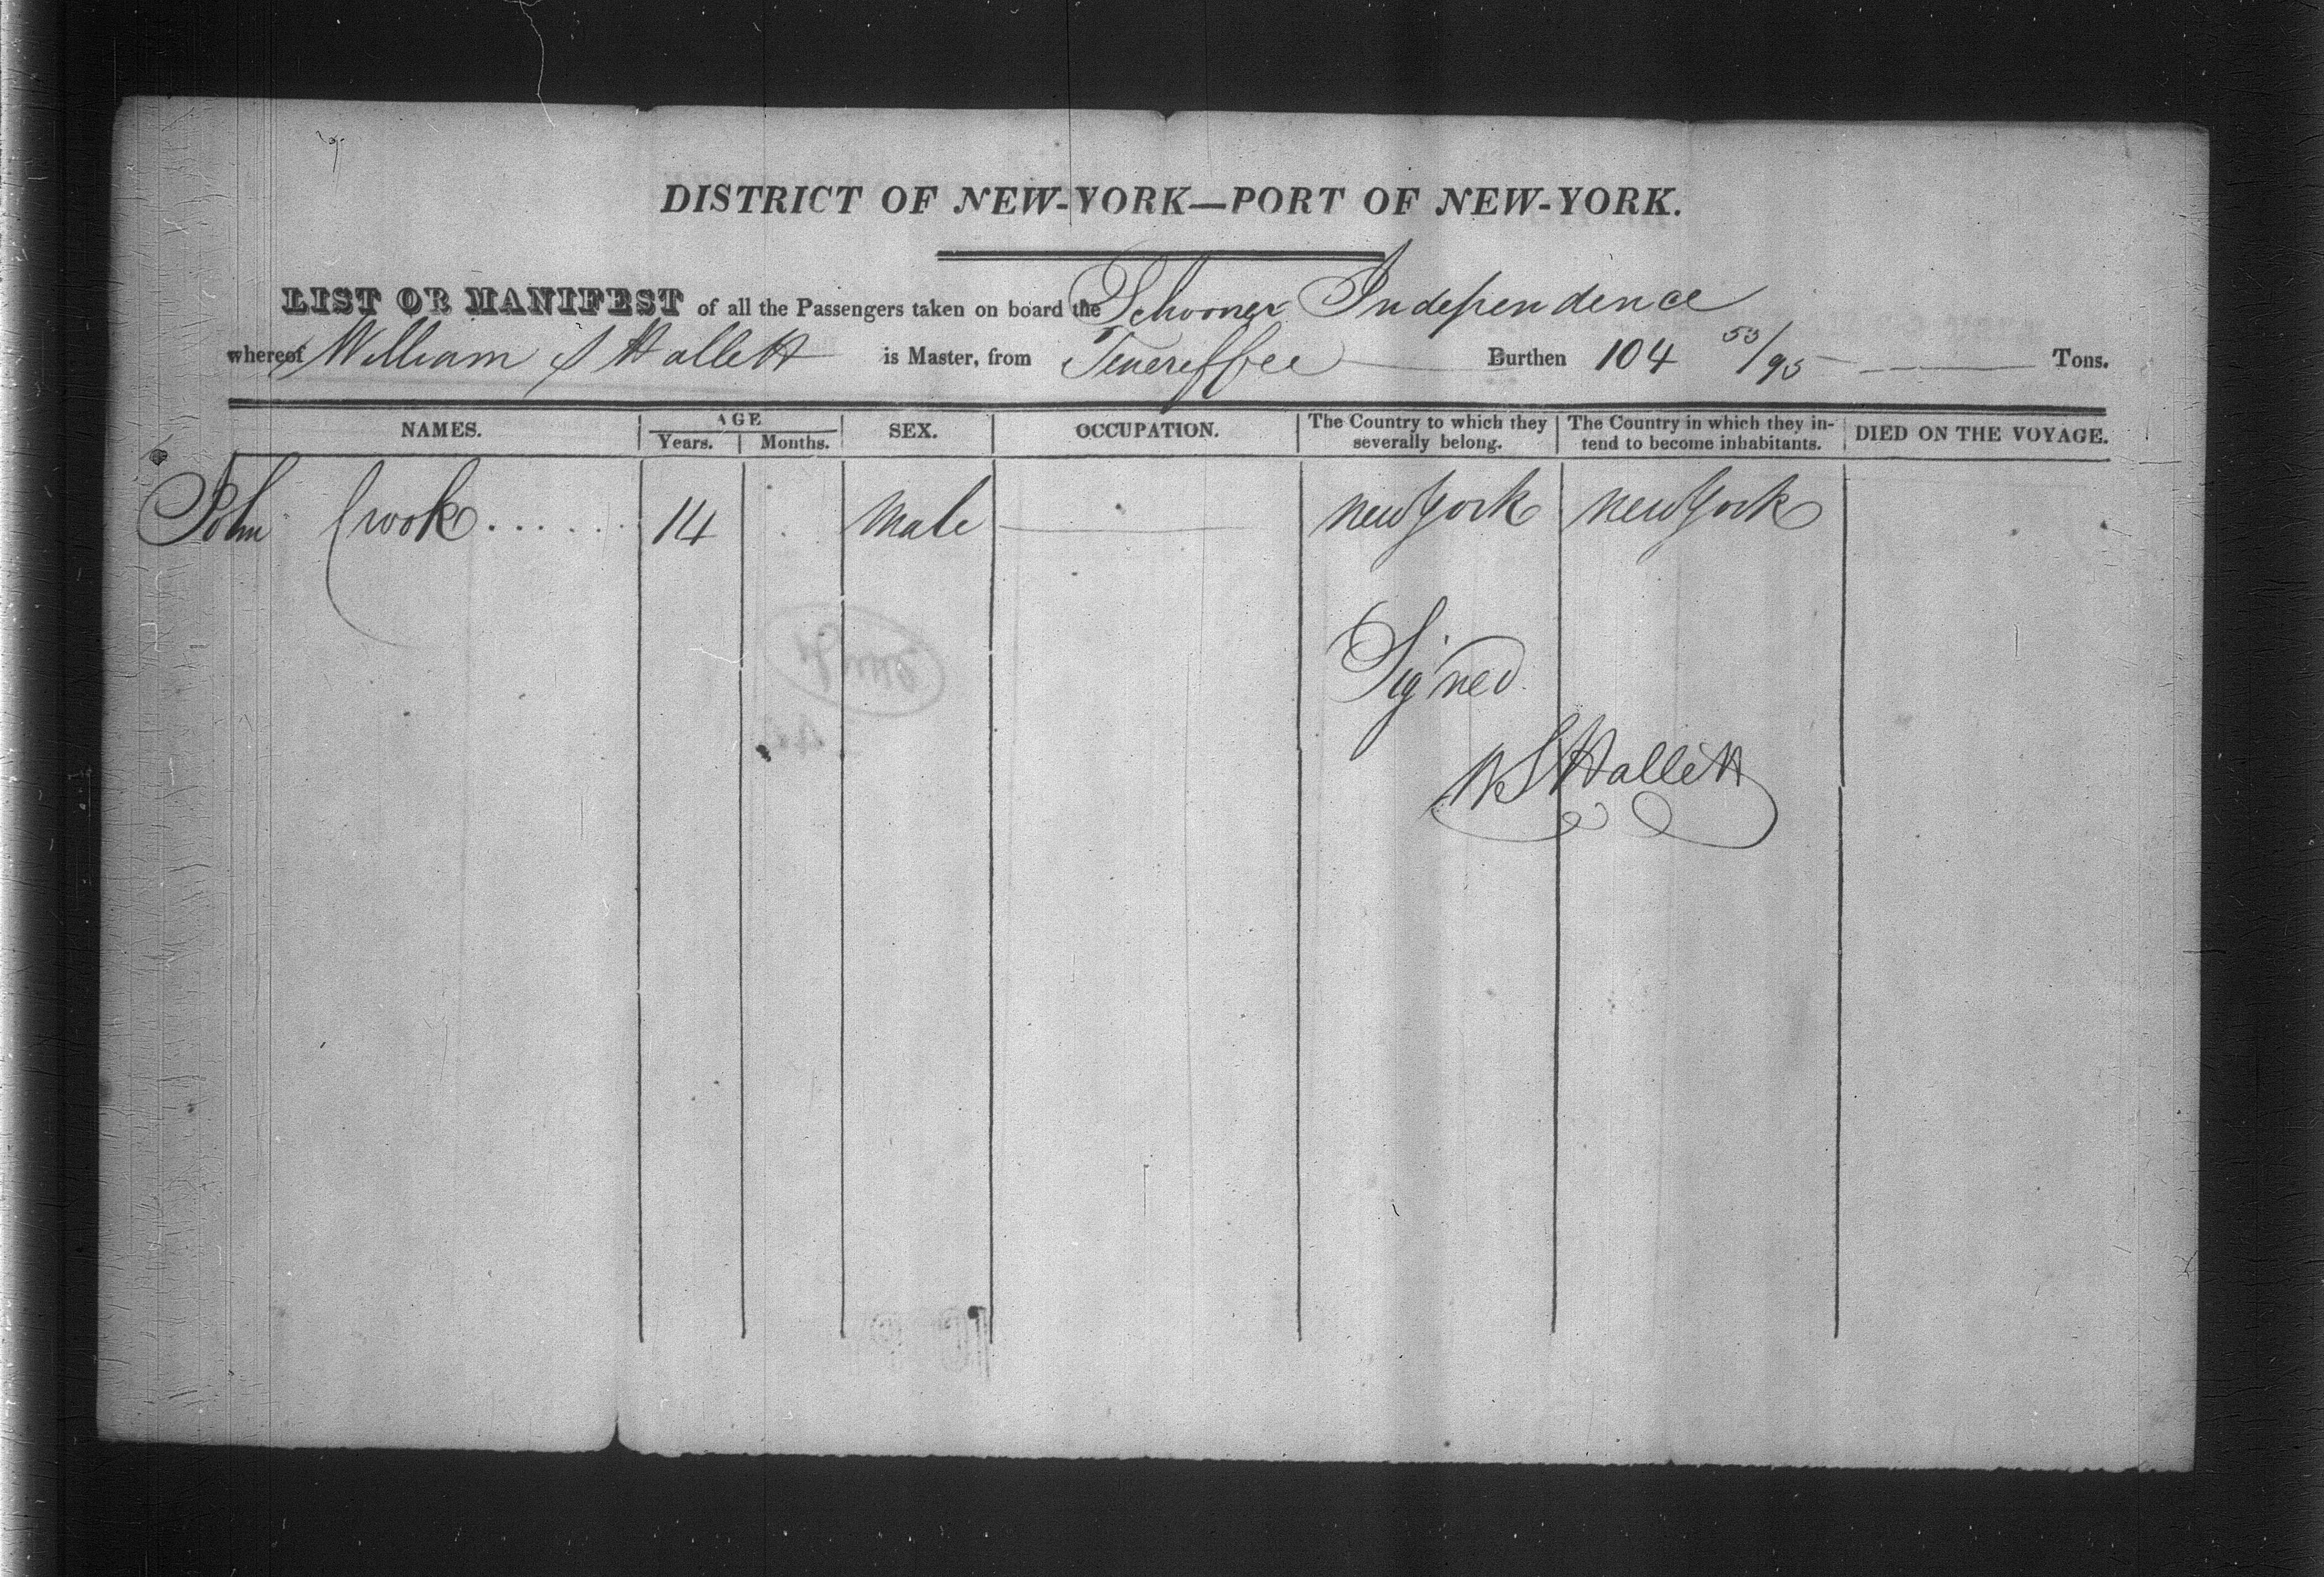 DISTRICT OF NEW-YORK—PORT OF NEW-YORK.
LIST OR MANIFEST of all the Passengers taken on board the Schooner Independence
whereof William S Hallett is Master, from Teneriffee Burthen 104 53/95 Tons.
NAMES. AGE Years. Months. SEX. OCCUPATION. The Country to which they severally belong. The Country in which they intend to become inhabitants. DIED ON THE VOYAGE.
John Crook...... 14 Male —— new york new york
Signed
W S Hallett